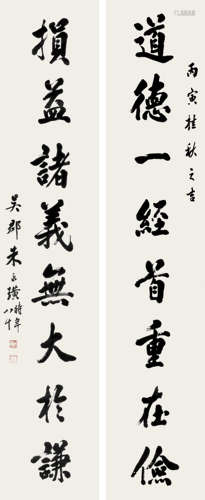 道德一經首重在儉
丙寅桂秋之吉
損益諸義無大於謙
吳郡朱永璜時年八十